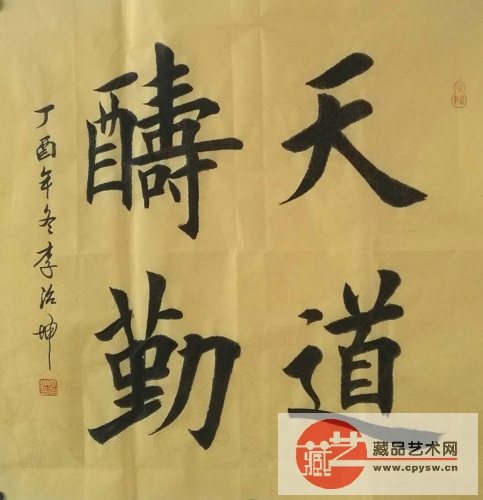 天道
醻勤
丁酉年冬李治坤
藏艺
藏品艺术网
www.cpysw.cn